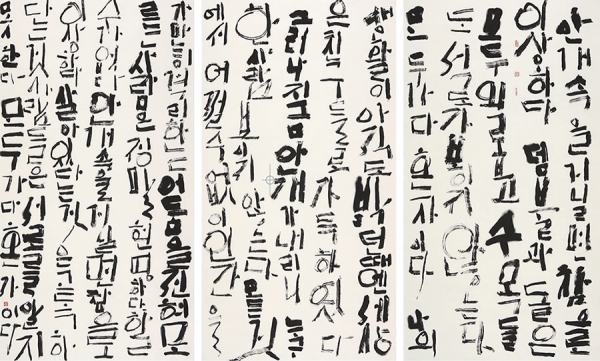 안개속을거닐면참으로
이상하다 덤불과돌은
모두외롭고 수목들
도서로가보이지않는다
모두가다혼자이다 나의
생활이아직도밝던때엔세상
은친구들로가득하였다
그러나지금안개가내리니누구
한사람보이지않는다모든것
에서어쩔수없이인간을
가만히격리하는어둠을전혀모
르는사람은정말현명하다할
수가없다안개속을거닐면참으로
이상하다살아있다는것은고독하
다는것사람들은서로를알지
못한다모두가다혼자이다